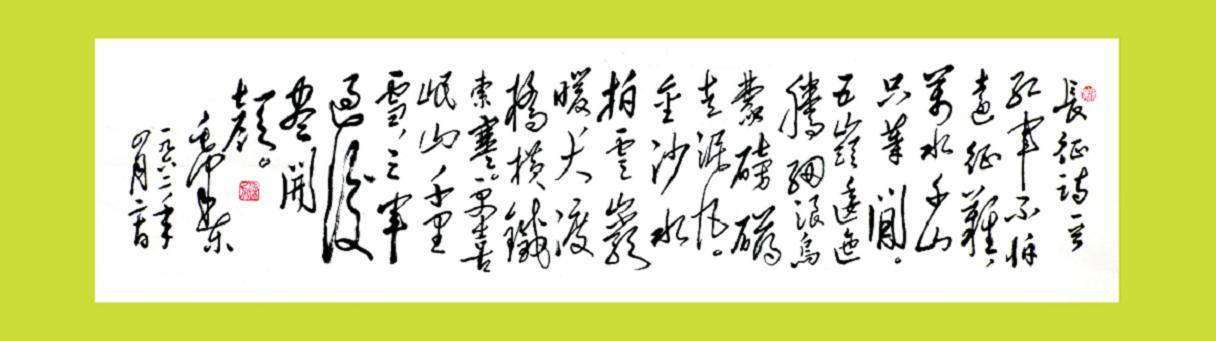 長征詩一首
紅軍不怕
遠征難，
萬水千山
只等閒。
五嶺逶迤
騰細浪烏
蒙磅礴
走泥丸。
金沙水
拍雲崖
暖大渡
橋橫鐵
索寒。更喜
岷山千里
雪，三軍
過後
盡開
顏。
毛澤東
一九六二年
四月二十日